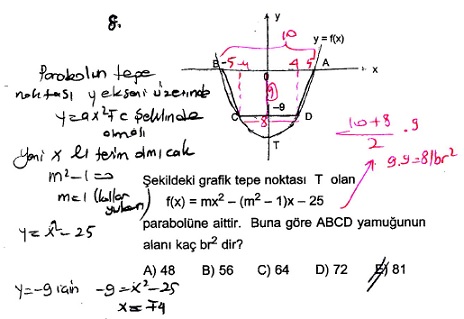 8.
10
y
y = f(x)
B -5 -4 0 4 5 A x
Parabolün tepe
noktası y ekseni üzerinde
y=ax²+c şeklinde
olmalı
9 -9
C 8 D
T
10+8
2 . 9
9.9=81br²
Yani x li terim olmıcak
m²-1=0
m=1 (kollar
yukarı)
y=x²-25
Şekildeki grafik tepe noktası T olan
f(x) = mx² – (m² – 1)x – 25
parabolüne aittir. Buna göre ABCD yamuğunun
alanı kaç br² dir?
A) 48 B) 56 C) 64 D) 72 E) 81
y=-9 için -9=x²-25
x=∓4